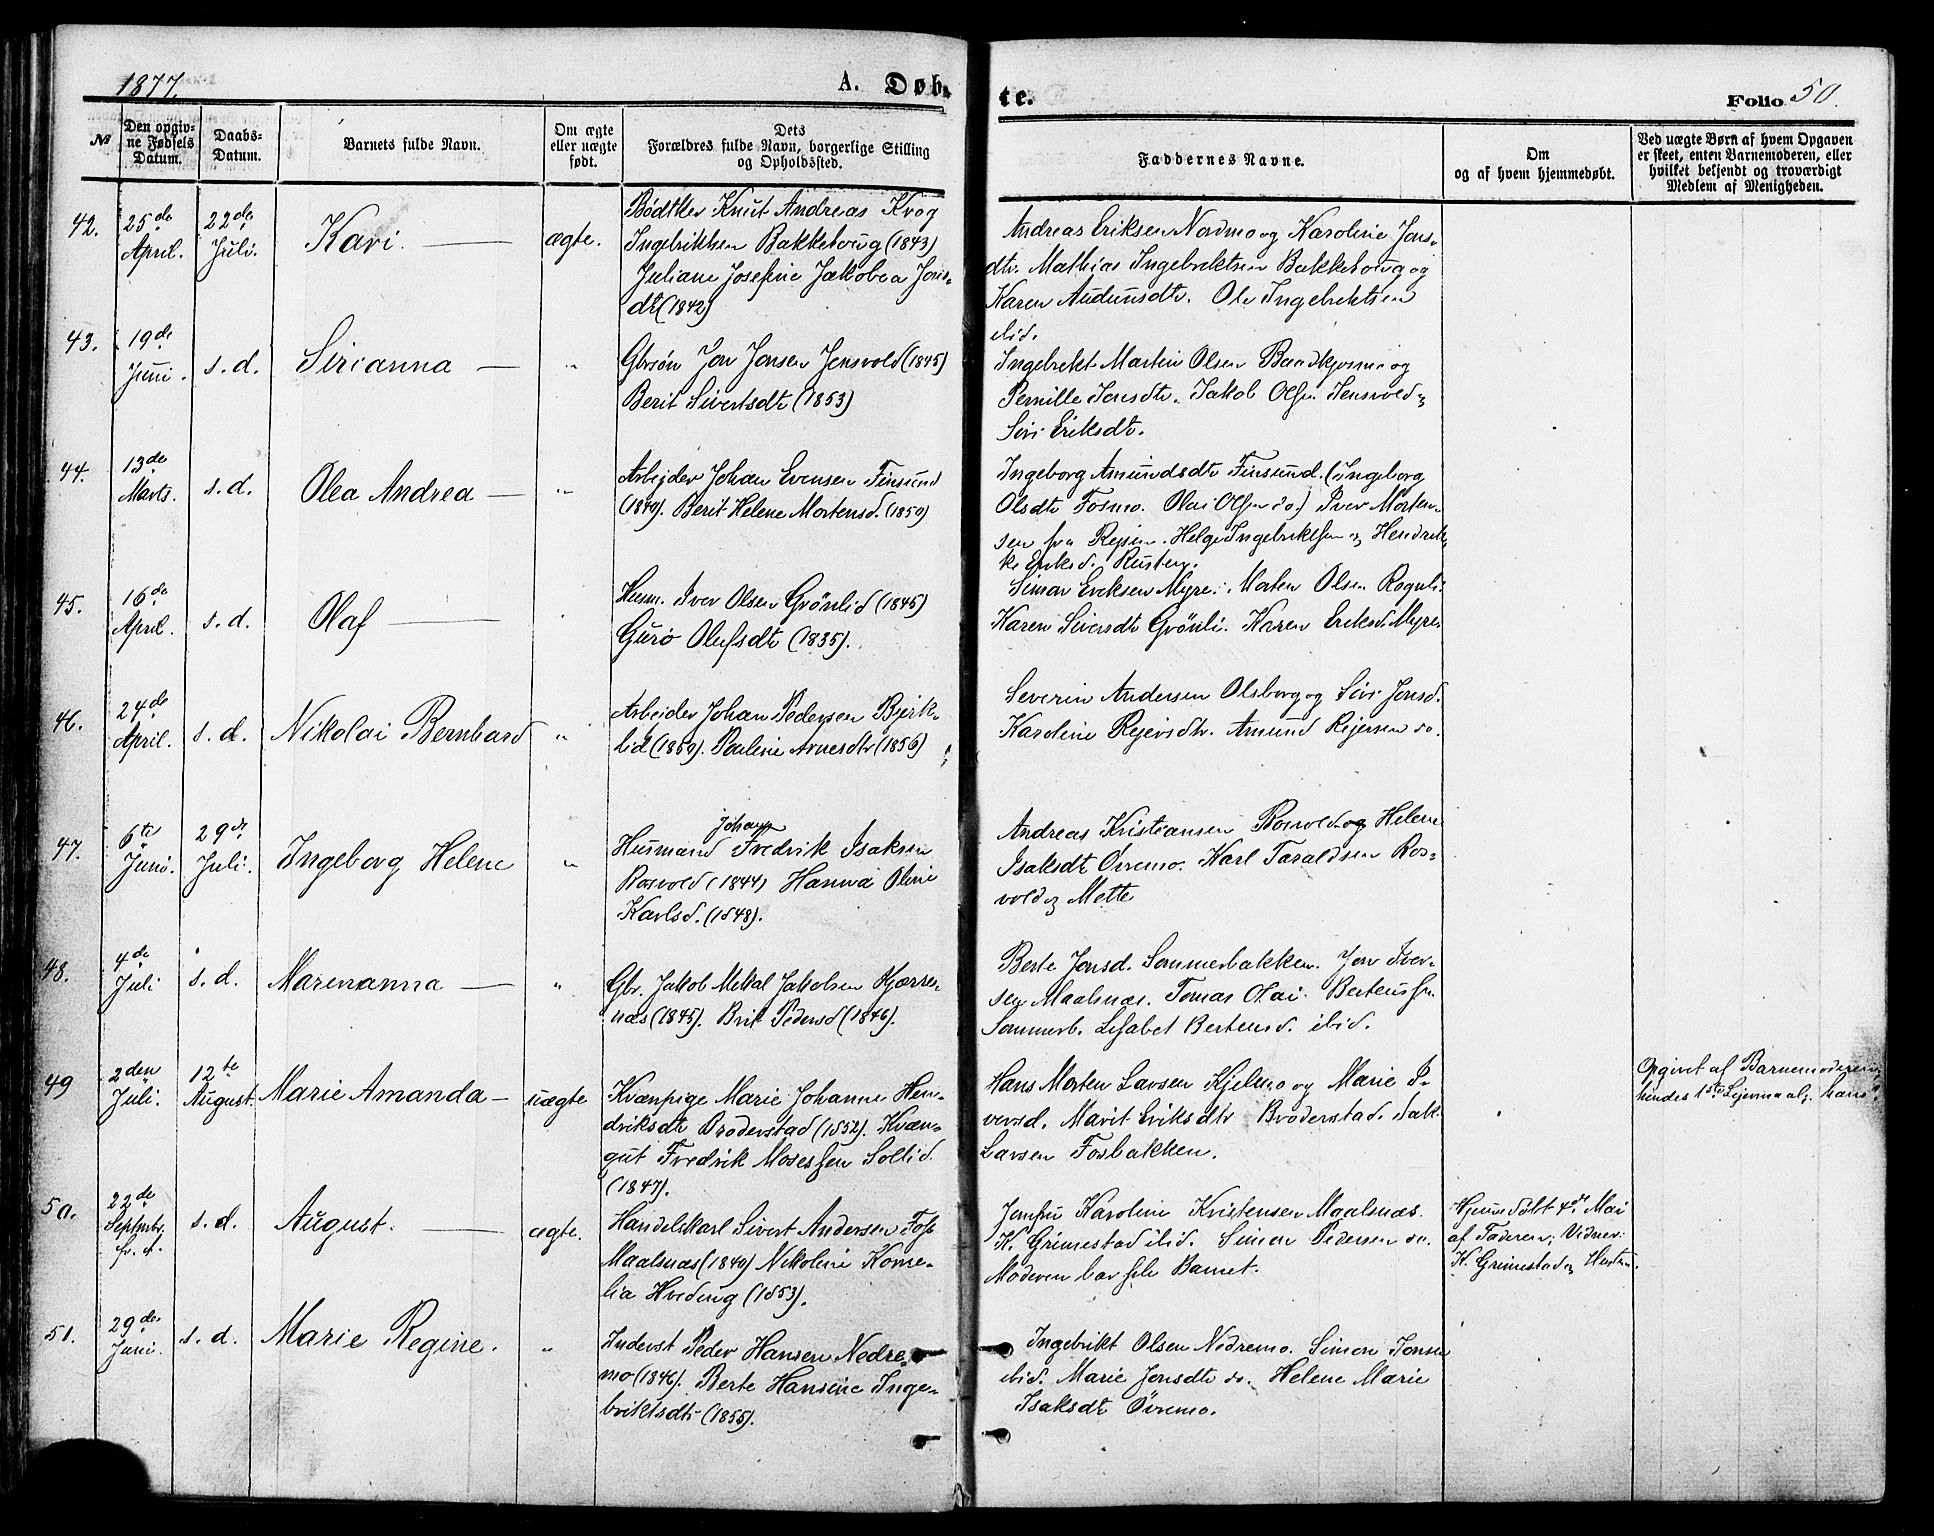 1877.
A. Døb-
te.
Folio 50.
№
Den opgiv-
ne Fødsels
Datum.
Daabs-
Datum.
Barnets fulde Navn.
Om ægte
eller uægte
født.
Dets
Forældres fulde Navn, borgerlige Stilling
og Opholdssted.
Faddernes Navne.
Om
og af hvem hjemmedøbt.
Ved uægte Børn af hvem Opgaven
er skeet, enten Barnemoderen, eller
hvilket bekjendt og troværdigt
Medlem af Menigheden.
42.
25de
April.
22de
Juli.
Kari.
ægte.
Bödtker Knut Andreas Krog
Ingebriktsen Bakkehaug (1843)
Juliane Josefine Jakobea Jons-
dt (1842)
Andreas Eriksen Nordmo og Karoline Jons-
dtr. Mathias Ingebriktsen Bakkehaug og
Karen Audunsdtr. Ole Ingebriktsen
ibid.
43.
19de
Juni.
s. d.
Sirianna
"
Gbrsön Jon Jonsen Jensvold (1845)
Berit Sivertsdtr (1853)
Ingebrikt Martin Olsen og
Pernille Jonsdtr. Jakob Olsen Jensvold og
Siri Eriksdtr.
44.
13de
Marts.
s. d.
Olea Andrea
"
Arbejder Johan Evensen Finsund
(1840). Berit Helene Mortensd. (1850)
Ingeborg Amundsdtr Finsund. (Ingeborg
Olsdtr Fosmo. Olai Olsen do.) Iver Morten-
sen fra Rejsen. Helge Ingebriktsen og Hendrik-
ke Eriksd. Rusten.
45.
16de
April.
s. d.
Olaf
Husm. Iver Olsen Grönlid (1845)
Guro Olufsdtr (1835).
Simon Eriksen Myre. Morten Olsen Rognli.
Karen Siversdtr Grönli. Karen Eriksd. Myre.
46.
24de
April.
s. d.
Nikolai Bernhard
"
Arbejder Johan Pedersen Bjerk-
lid (1850). Pauline Arnesdtr (1856)
Severin Andersen Olsborg og Siri Jonsd.
Karoline Rejersdtr. Amund Rejersen do.
47.
6te
Juni.
29de
Juli.
Ingeborg Helene
"
Johan
Husmand Fredrik Isaksen
Rosvold (1844) Hanna Oline
Karlsd. (1848).
Andreas Kristiansen Rosvold og Helene
Isaksdt Övremo. Karl Taraldsen Ros-
vold og Mette
48.
4de
Juli
s. d.
Marenanna
"
Gbr. Jakob Mikal Jakobsen Kjerre-
næs (1845). Brit Pedersd (1846).
Berte Jonsd. Sommerbakken. Jon Iver-
sen Maalsnæs. Tomas Olai Berteussen
Sommerb. Lisabet Berteusd. ibid.
49
2den
Juli.
12te
August.
Marie Amanda
uægte
Kvænpige Marie Johanne Hen-
driksdtr Broderstad (1852). Kvæn-
gut Fredrik Mosessen Sollid.
(1847).
Hans Morten Larsen Kjelmo og Marie I-
versd. Marit Eriksdtr Broderstad. Isak
Larsen Fosbakken.
Opgivet af Barnemoderen;
hendes 1ste Lejermaal; hans
50.
22de
Septembr.
f. A.
s. d.
August.
ægte.
Handelskarl Sivert Andersen Foss
Maalsnæs (1840) Nikoline Korne-
lia Hveding (1853).
Jomfru Karoline Kristensen Maalsnæs.
K. Grimestad ibid. Simon Pedersen do.
Moderen bar selv Barnet.
Hjemmedöbt 4de Mai
af Faderen; Vidner:
K. Grimestad og
51.
29de
Juni.
s. d.
Marie Regine.
"
Inderst Peder Hansen Nedre-
mo (1846). Berte Hansine Inge-
briktsdtr (1855).
Ingebrikt Olsen Nedremo. Simon Jonsen
ibid. Marie Jonsdtr do. Helene Marie
Isaksdt Övremo.